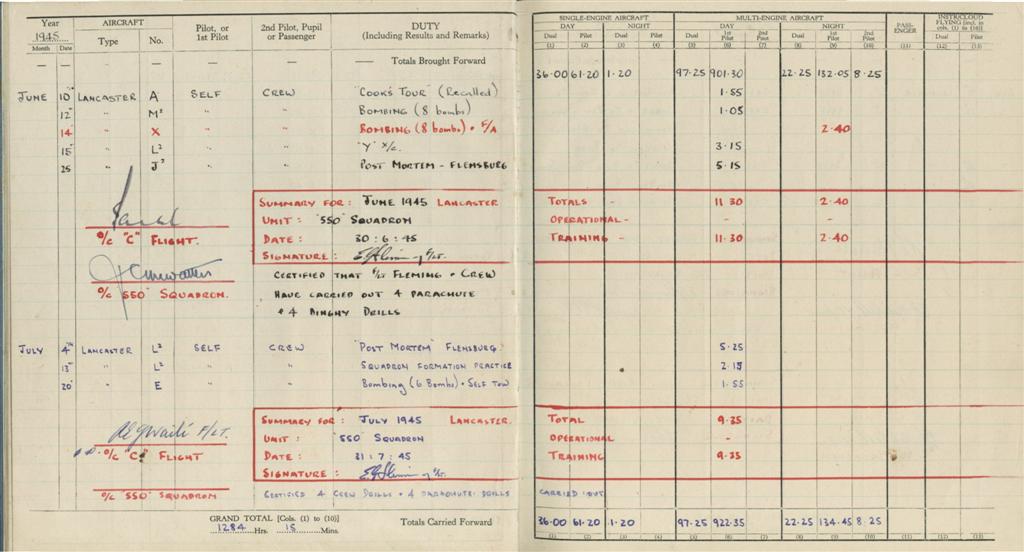 Year AIRCRAFT Pilot, or 2nd Pilot, Pupil DUTY SINGLE-ENGINE AIRCRAFT MULTI-ENGINE AIRCRAFT PASS- INSTR/CLOUD
1945 1st Pilot or Passenger (Including Results and Remarks) DAY NIGHT DAY NIGHT ENGER FLYING [Incl. in cols. (1) to (10)]
Month Date Type No. Dual Pilot Dual Pilot Dual 1st Pilot 2nd Pilot Dual 1st Pilot 2nd Pilot Dual Pilot
(1) (2) (3) (4) (5) (6) (7) (8) (9) (10) (11) (12) (13)
— — — — — — — Totals Brought Forward 36.00 61.20 1.20 97.25 901.30 22.25 132.05 8.25
JUNE 10 LANCASTER A SELF CREW "COOK'S TOUR" (Recalled) 1.55
12 " M² " " BOMBING (8 bombs) 1.05
14 " X " " BOMBING (8 bombs) + F/A 2.40
15 " L² " " "Y" x/c. 3.15
25 " J² " " POST MORTEM - FLENSBURG 5.15
SUMMARY FOR: JUNE 1945 LANCASTER TOTALS 11 30 2.40
UNIT: "550" SQUADRON OPERATIONAL - - -
O/C "C" FLIGHT. DATE: 30:6:45 TRAINING - 11.30 2.40
SIGNATURE: F/LT.
CERTIFIED THAT F/LT FLEMING + CREW
O/C "550" SQUADRON. HAVE CARRIED OUT 4 PARACHUTE
+ 4 DINGHY DRILLS
JULY 4TH LANCASTER L² SELF CREW "POST MORTEM" FLENSBURG. 5.25
13 " L² " " SQUADRON FORMATION PRACTICE 2.15
20 " E " " Bombing (6 Bombs) + SELF TOW 1.55
SUMMARY FOR: JULY 1945 LANCASTER. TOTAL 9.35
F/LT. UNIT: "550" SQUADRON OPERATIONAL -
O/C "C" FLIGHT DATE: 31:7:45 TRAINING 9.35
SIGNATURE: F/LT.
O/C "550" SQUADRON CERTIFIED 4 CREW DRILLS + 4 PARACHUTE DRILLS CARRIED OUT
GRAND TOTAL [Cols. (1) to (10)] Totals Carried Forward 36.00 61.20 1.20 97.25 922.35 22.25 134.45 8.25
1284 Hrs. 15 Mins. (1) (2) (3) (4) (5) (6) (7) (8) (9) (10) (11) (12) (13)